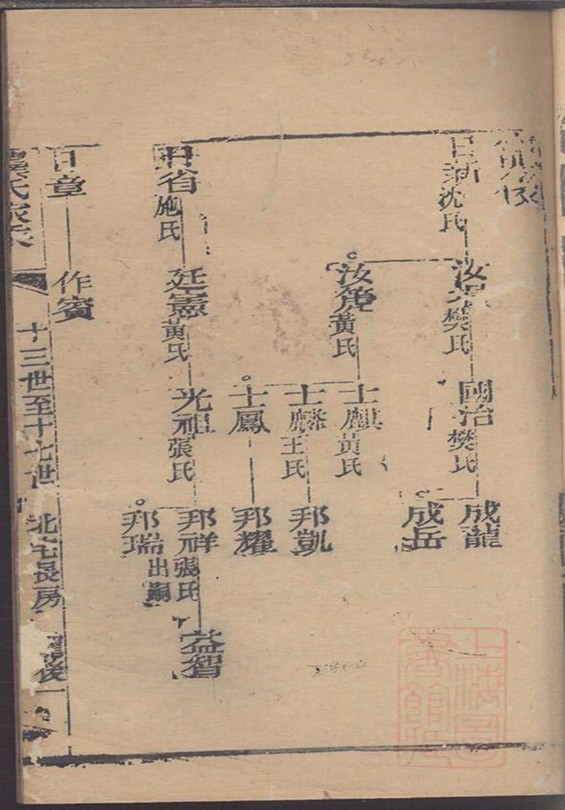 日新 沈氏
樊氏
國治 樊氏
成龍
成岳
黃氏
士麒 黃氏
士麟 王氏
邦凱
士鳳
邦耀
日省 施氏
廷憲 黃氏
光祖 張氏
邦祥 張氏
益智
邦瑞 出嗣
日章
作賓
氏家
十三世至十七世
北宅長房
後一
上海圖書館藏